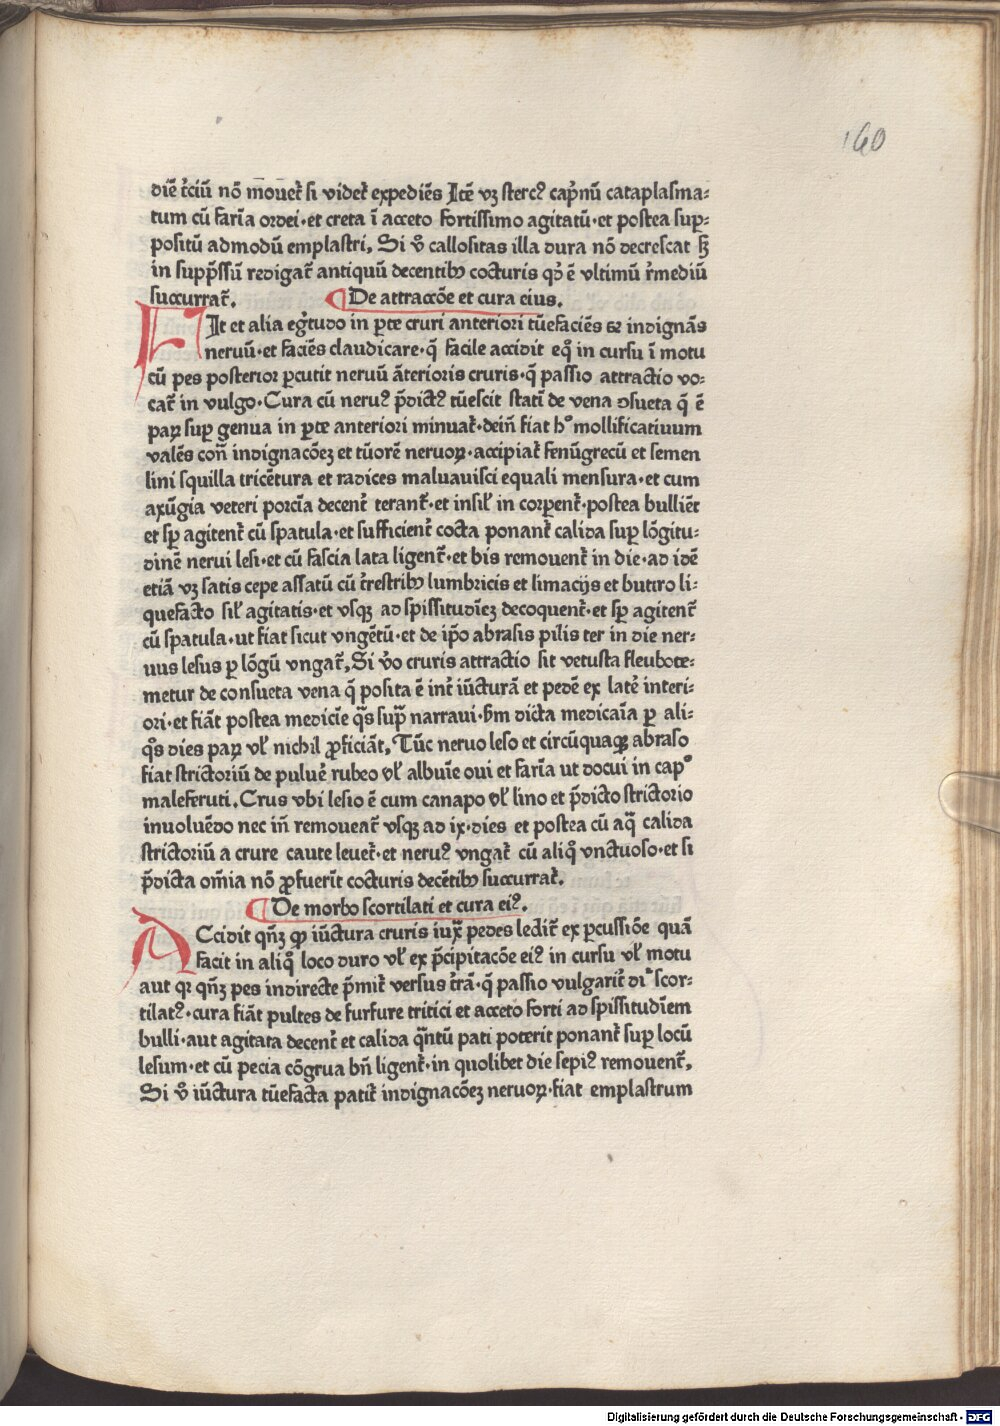 160
diē t̄ciū nō mouet̄ si videt̄ expediēs Itē vꝫ stercꝰ cap̄nū cataplasma⸗
tum cū farīa ordei·et creta ī acceto fortissimo agitatū·et postea sup⸗
positū admodū emplastri, Si v̄o callositas illa dura nō decrescat sꝫ
in supp̄ssū redigat̄ antiquū decentibꝰ cocturis qd̄ ē vltimū r̄mediū
succurrat̄.
¶De attraccōe et cura eius.
FIt et alia egr̄tudo in ꝑte cruri anteriori tūefaciēs & indignās
neruū·et faciēs claudicare·q̄ facile accidit eq̄ in cursu ī motu
cū pes posterior ꝑcutit neruū āterioris cruris·q̄ passio attractio vo⸗
cat̄ in vulgo·Cura cū neruꝰ p̄dictꝰ tūescit statī de vena ↄsueta q̄ ē
paꝝ suꝑ genua in ꝑte anteriori minuat̄·deiñ fiat hꝰ mollificatiuum
valēs coñ indignacōeꝫ et tūorē neruoꝝ·accipiat̄ fenūgrecū et semen
lini squilla tricētura et radices maluauisci equali mensura·et cum
axūgia veteri porcīa decent̄ terant̄·et insil̄ in corꝑent̄·postea bulliēt
et sꝑ agitent̄ cū spatula·et sufficient̄ cocta ponant̄ calida suꝑ lōgitu⸗
dinē nerui lesi·et cū fascia lata ligent̄·et bis remouent̄ in die·ad idē
etiā vꝫ satis cepe assatū cū t̄restribꝰ lumbricis et limacijs et butiro li⸗
quefacto sil̄ agitatis·et vsqꝫ ad spissitudīeꝫ decoquent̄·et sꝑ agitent̄
cū spatula·ut fiat sicut vngētū·et de ip̄o abrasis pilis ter in die ner⸗
uus lesus ꝑ lōgū vngat̄, Si v̄o cruris attractio sit vetusta fleubote⸗
metur de consueta vena q̄ posita ē int̄ iūcturā et pedē ex late̅ interi⸗
ori·et fiāt postea medicīe q̄s sup̄ narraui·s̄m dicta medicaīa ꝑ ali⸗
q̄s dies paꝝ vl̄ nichil ꝓficiāt, Tūc neruo leso et circūquaqꝫ abraso
fiat strictoriū de puluē rubeo vl̄ albuīe oui et farīa ut docui in capᵒ
maleferuti. Crus vbi lesio ē cum canapo vl̄ lino et p̄dicto strictorio
inuoluēdo nec iñ remoueat̄ vsqꝫ ad ix·dies et postea cū aq̄ calida
strictoriū a crure caute leuet̄·et neruꝰ vngat̄ cū aliq̄ vnctuoso·et si
p̄dicta om̄ia nō ꝓfuerīt cocturis decētibꝰ succurrat̄.
¶De morbo scortilati et cura eiꝰ.
ACcidit qn̄ꝫ ꝙ iūctura cruris iuxᵃ pedes ledit̄ ex ꝑcussiōe quā
facit in aliq̄ loco duro vl̄ ex p̄cipitacōe eiꝰ in cursu vl̄ motu
aut qꝛ qn̄ꝫ pes indirecte p̄mit̄ versus t̄rā·q̄ passio vulgarit̄ dr̄ scor⸗
tilatꝰ·cura fiāt pultes de furfure tritici et acceto forti ad spissitudīem
bulli·aut agitata decent̄ et calida q̄ntū pati poterit ponant̄ suꝑ locū
lesum·et cū pecia cōgrua bn̄ ligent̄·in quolibet die sepiꝰ remouent̄,
Si v̄o iūctura tūefacta patit̄ indignacōeꝫ neruoꝝ·fiat emplastrum
Digitalisierung gefördert durch die Deutsche Forschungsgemeinschaft - DFG